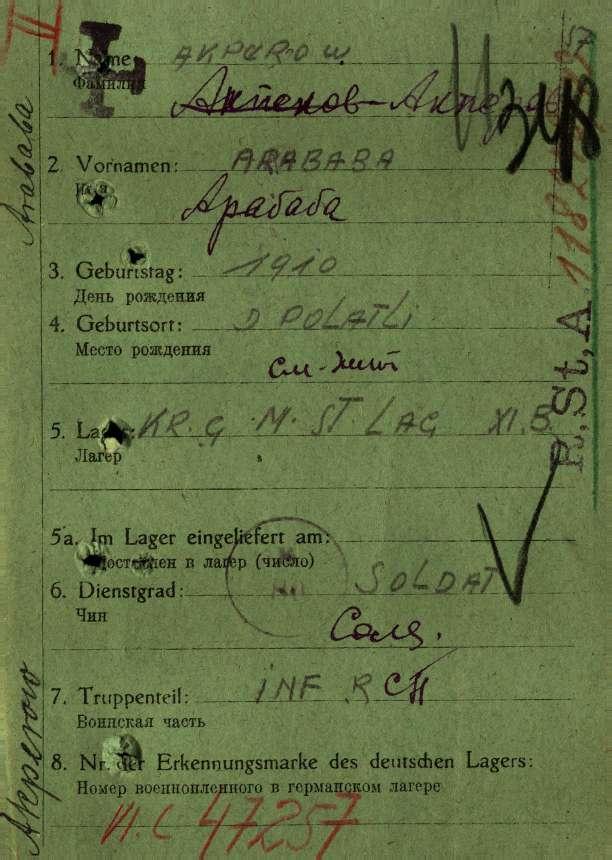 II
1. Name: AKPUROW
Фамилия Акпеков-Акперов
348
57
2. Vornamen: ARABABA
Имя Арабаба
3. Geburtstag: 1910
День рождения
4. Geburtsort: D POLATLI
Место рождения
5. Lager: KR. G. M. ST LAG XI.B.
Лагерь
R,St,A
5a. Im Lager eingeliefert am:
Доставлен в лагер (число)
6. Dienstgrad: SOLDAT
Чин
Солд.
7. Truppenteil: INF R СП
Воинская часть
8. Nr. der Erkennungsmarke des deutschen Lagers:
Номер военнопленного в германском лагере
VI.C 47257
Arababa
Akperow